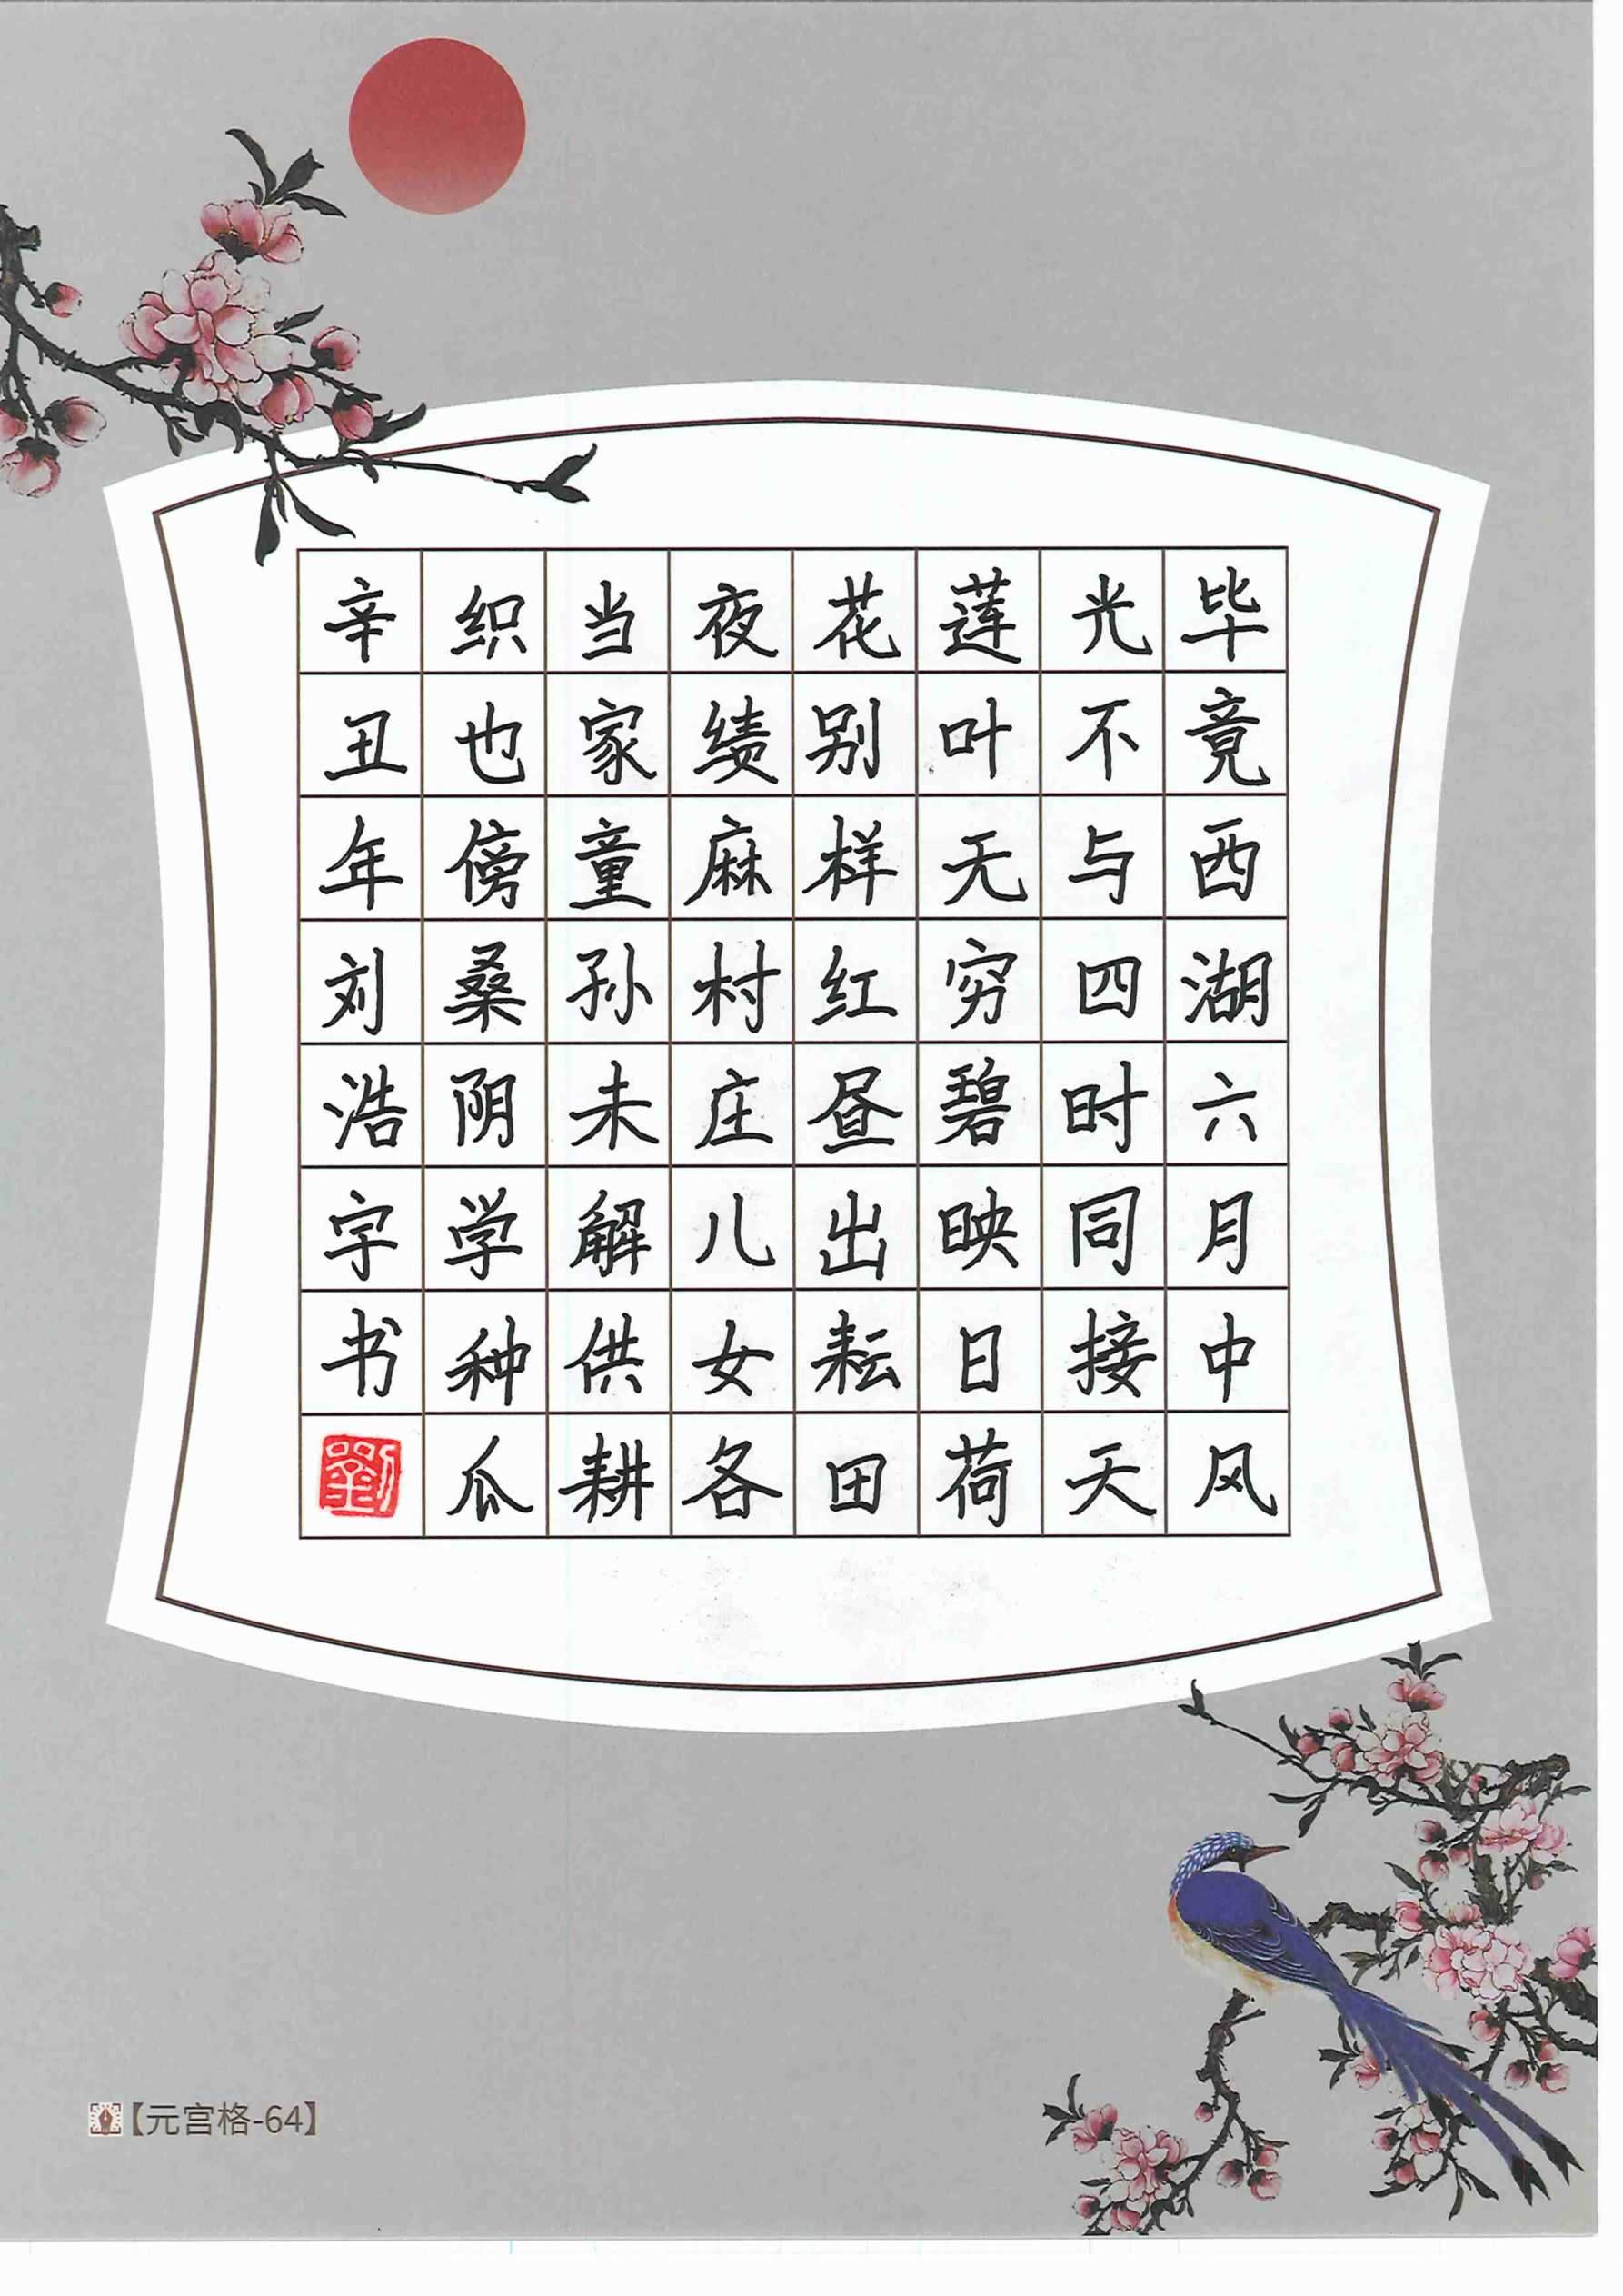 毕竟西湖六月中风
光不与四时同接天
莲叶无穷碧映日荷
花别样红昼出耘田
夜绩麻村庄儿女各
当家童孙未解供耕
织也傍桑阴学种瓜
辛丑年刘浩宇书
劉
【元宫格-64】